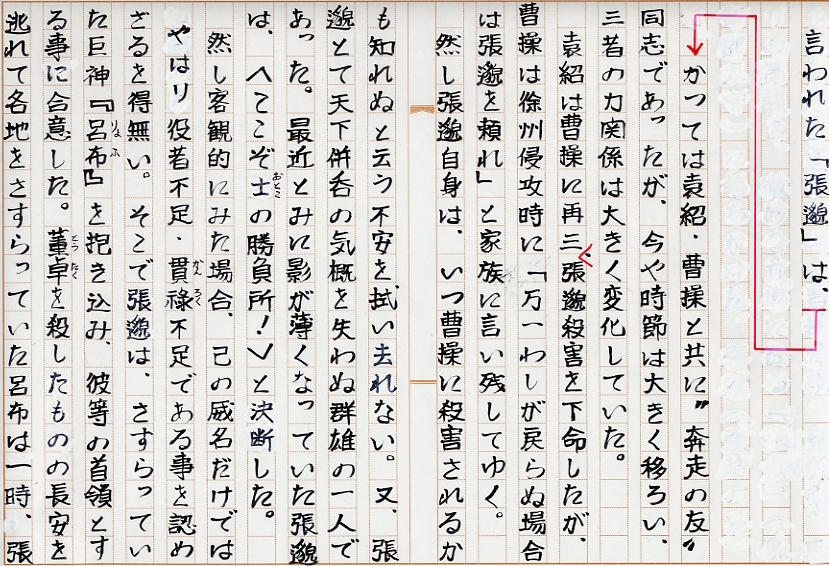 言われた「張邈」は、
かつては袁紹・曹操と共に〝奔走の友〟
同志であったが、今や時節は大きく移ろい、
三者の力関係は大きく変化していた。
袁紹は曹操に再三、張邈殺害を下命したが、
曹操は徐州侵攻時に「万一わしが戻らぬ場合
は張邈を頼れ」と家族に言い残してゆく。
然し張邈自身は、いつ曹操に殺害されるか
も知れぬと云う不安を、拭い去れない。又、張
邈とて天下併呑の気概を失わぬ群雄の一人で
あった。最近とみに影が薄くなっていた張邈
は、〈ここぞ士の勝負所！〉と決断した。
然し客観的にみた場合、己の威名だけでは
やはり役者不足・貫禄不足である事を認め
ざるを得無い。そこで張邈は、さすらってい
た巨神『呂布』を抱き込み、彼等の首領とす
る事に合意した。董卓を殺したものの長安を
逃れて各地をさすらっていた呂布は一時、張